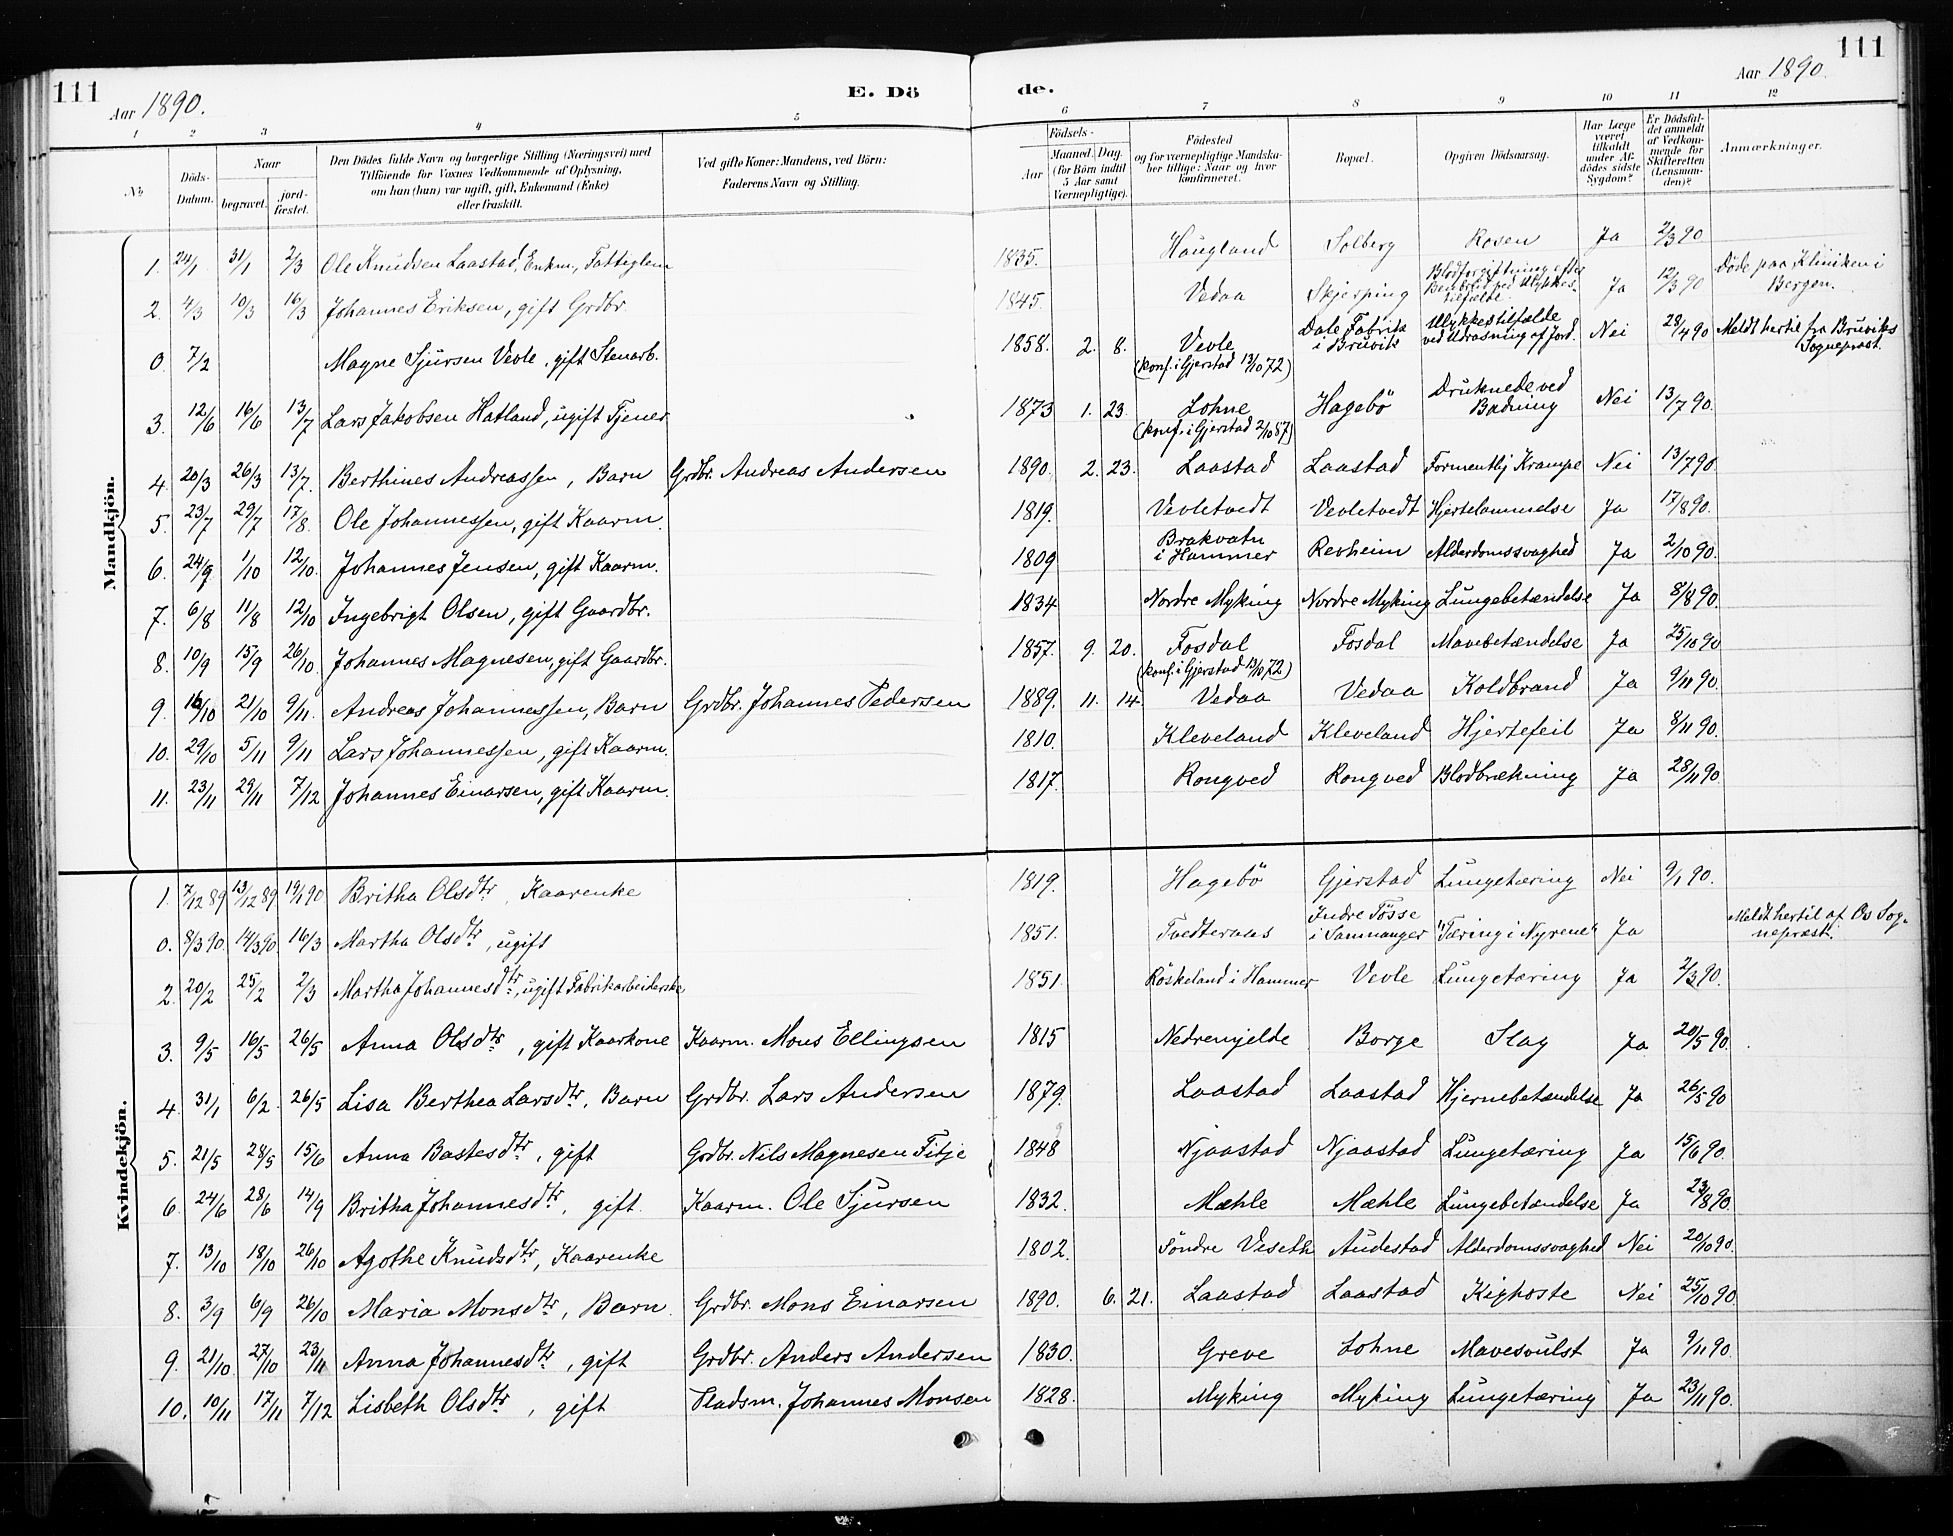 111
Aar 1890.
E. Dö
de.
Aar 1890.
111
1 2 3 4 5 6 7 8 9 10 11 12
№
Döds-Datum.
Naar
begravet.
jord-fæstet.
Den Dödes fulde Navn og borgerlige Stilling (Næringsvei) med
Tilföiende for Voxnes Vedkommende af Oplysning,
om han (hun) var ugift, gift, Enkemand (Enke)
eller fraskilt.
Ved gifte Koner: Mandens, ved Börn:
Faderens Navn og Stilling.
Födsels-
Aar
Maaned. Dag.
(for Börn indtil
5 Aar samt
Værnepligtige).
Födested
og for værnepligtige Mandska-
ber tillige: Naar og hvor
konfirmeret.
Bopæl.
Opgiven Dödsaarsag.
Har Læge
været
tilkaldt
under Af-
dödes sidste
Sygdom?
Er Dödsfal-
det anmeldt
af Vedkom-
mende for
Skifteretten
(Lensman-
den)?
Anmærkninger.
Mandkjön.
1. 24/1 31/1 2/3 Ole Knudsen Laastad, Enkm., Fattiglem 1835. Haugland Solberg Rosen Ja 2/3 90
2. 4/3 10/3 16/3 Johannes Eriksen, gift Grdbr. 1845. Vedaa Skjerping Blodforgiftning efter Benbrud ved Ulykkes-tilfælde. Ja 12/3 90 Døde paa Kliniken i Bergen.
0. 7/2 Magne Sjursen Vevle, gift Stenarb. 1858. 2. 8. Vevle (konf. i Gjerstad 13/10 72) Dale Fabrik i Bruvik Ulykkestilfælde ved Udrasning af Jord. Nei 28/4 90 Meldt hertil fra Bruviks Sognepræst.
3. 12/6 16/6 13/7 Lars Jakobsen Hatland, ugift Tjener 1873 1. 23. Lohne (konf. i Gjerstad 2/10 87) Hagebö Druknede ved Badning Nei 13/7 90.
4. 20/3 26/3 13/7. Berthines Andreassen, Barn Grdbr. Andreas Andersen 1890. 2. 23. Laastad Laastad Formentlj Krampe Nei 13/7 90.
5. 23/7 29/7 17/8. Ole Johannessen, gift Kaarm. 1819. Vevletvedt Vevletvedt Hjertelammelse Ja 17/8 90.
6. 24/9 1/10 12/10. Johannes Jensen, gift Kaarm. 1809 Brakvatn i Hammer Revheim Alderdomssvaghed Ja 2/10 90.
7. 6/8 11/8 12/10 Ingebrigt Olsen, gift Gaardbr. 1834 Nordre Myking Nordre Myking Lungebetændelse Ja 8/8 90.
8. 10/9 15/9 26/10. Johannes Magnesen, gift Gaardbr. 1857. 9. 20. Fosdal (konf. i Gjerstad 13/10 72) Fosdal Mavebetændelse Ja 25/10 90
9. 16/10 21/10 9/11. Andreas Johannessen, Barn Grdbr. Johannes Pedersen 1889. 11. 14. Vedaa Vedaa Koldbrand Ja 9/11 90.
10. 29/10 5/11 9/11 Lars Johannessen, gift Kaarm. 1810. Kleveland Kleveland Hjertefeil Ja 8/11 90.
11. 23/11 29/11 7/12 Johannes Einarsen, gift Kaarm. 1817. Rongved Rongved Blodbrækning Ja 28/11 90.
Kvindekjön.
1. 7/12 89 13/12 89 19/1 90 Britha Olsdtr., Kaarenke 1819. Hagebö Gjerstad Lungetæring Nei 9/1 90.
0. 8/3 90 14/3 90. 16/3 Martha Olsdtr., ugift 1851. Tvedteraas Indre Tösse i Samnanger "Tæring i Nyrene" Ja Meldt hertil af Os Sog-nepræst.
2. 20/2 25/2 2/3 Martha Johannesdtr., ugift Fabrikarbeiderske 1851. Röskeland i Hammer Vevle Lungetæring Ja 2/3 90.
3. 9/5 16/5 26/5 Anna Olsdtr., gift Kaarkone Kaarm. Mons Ellingsen 1815 Nedremjelde Borge Slag Ja 20/5 90.
4. 31/1 6/2. 26/5 Lisa Berthea Larsdtr., Barn Grdbr. Lars Andersen 1879. Laastad Laastad Hjernebetændelse Ja 26/5 90
5. 21/5 28/5 15/6 Anna Bastesdtr., gift Grdbr. Nils Magnesen Fitje 1848 Njaastad Njaastad Lungetæring Ja 15/6 90.
6. 24/6 28/6 14/9 Britha Johannesdtr., gift Kaarm. Ole Sjursen 1832. Mæhle Mæhle Lungebetændelse Ja 23/8 90.
7. 13/10 18/10 26/10 Agothe Knudsdtr., Kaarenke 1802. Söndre Viseth Audestad Alderdomssvaghed Nei 20/10 90.
8. 3/9 6/9 26/10 Maria Monsdtr., Barn. Grdbr. Mons Einarsen 1890. 6. 21. Laastad Laastad Kighoste Nei 25/10 90.
9. 21/10. 27/10 23/11 Anna Johannesdtr., gift Grdbr. Anders Andersen 1830. Greve Lohne Mavesvulst Ja 9/11 90.
10. 10/11 17/11 7/12 Lisbeth Olsdtr., gift Pladsm. Johannes Monsen 1828. Myking Myking Lungetæring Ja 23/11 90.